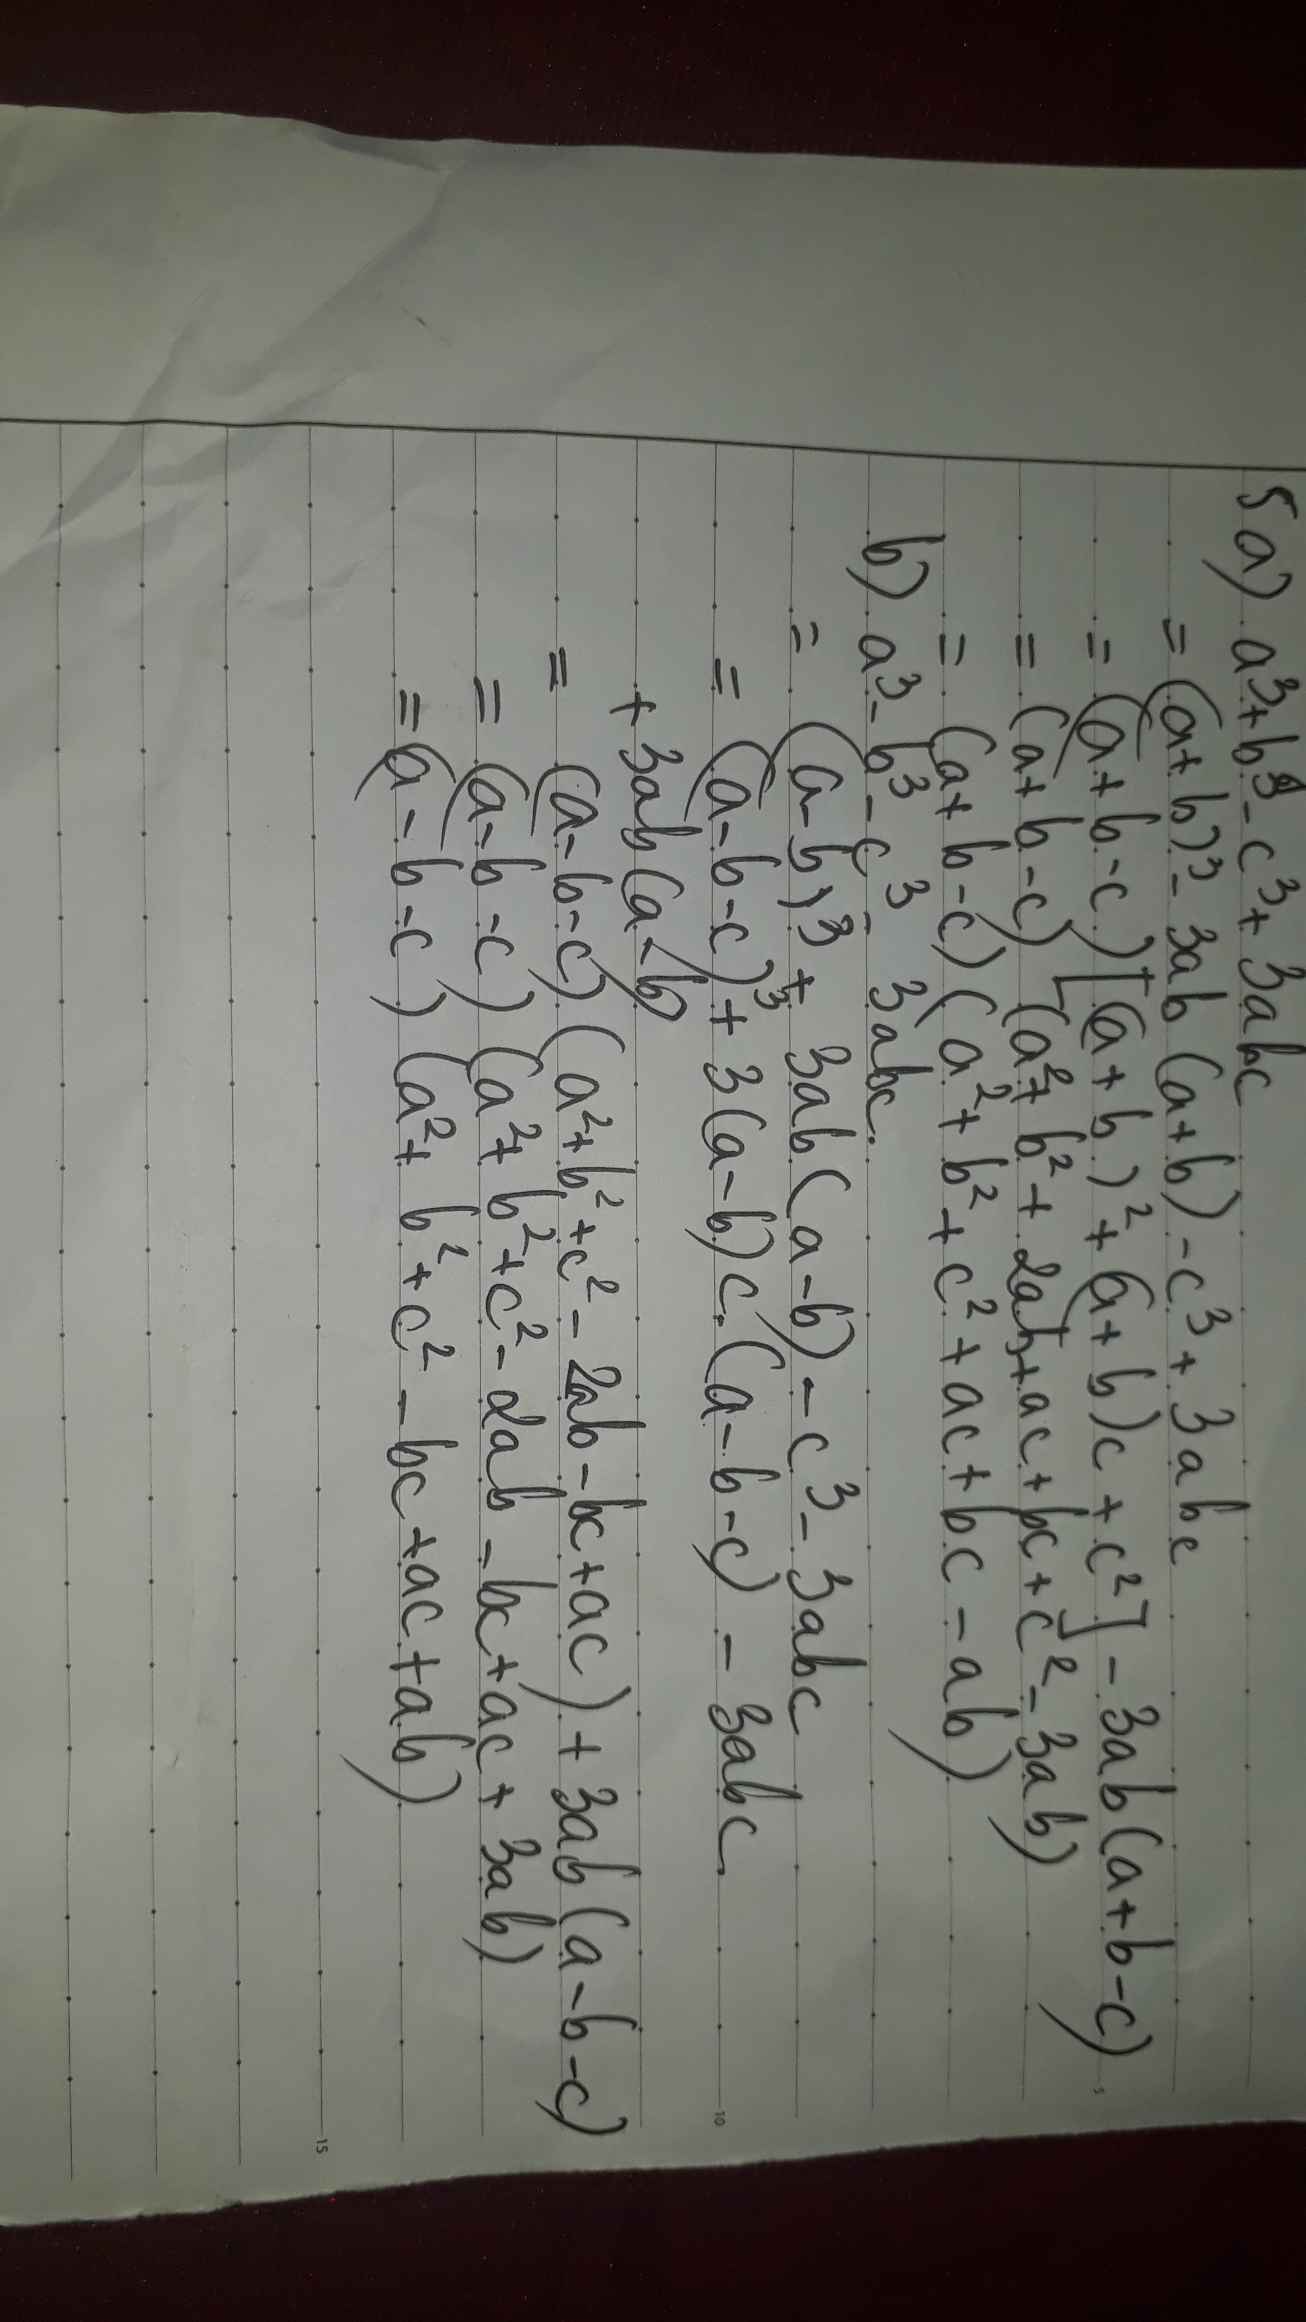 5 a) a³+b³-c³+3abc
= (a+b)³-3ab(a+b)-c³+3abc
= (a+b-c)[(a+b)²+(a+b)c+c²]-3ab(a+b-c)
= (a+b-c)(a²+b²+2ab+ac+bc+c²-3ab)
= (a+b-c)(a²+b²+c²+ac+bc-ab)
b) a³-b³-c³-3abc.
= (a-b)³+3ab(a-b)-c³-3abc
= (a-b-c)³+3(a-b)c.(a-b-c)-3abc
+3ab(a-b)
= (a-b-c)(a²+b²+c²-2ab-bc+ac)+3ab(a-b-c)
= (a-b-c)(a²+b²+c²-2ab-bc+ac+3ab)
= (a-b-c)(a²+b²+c²-bc+ac+ab)
5
10
15